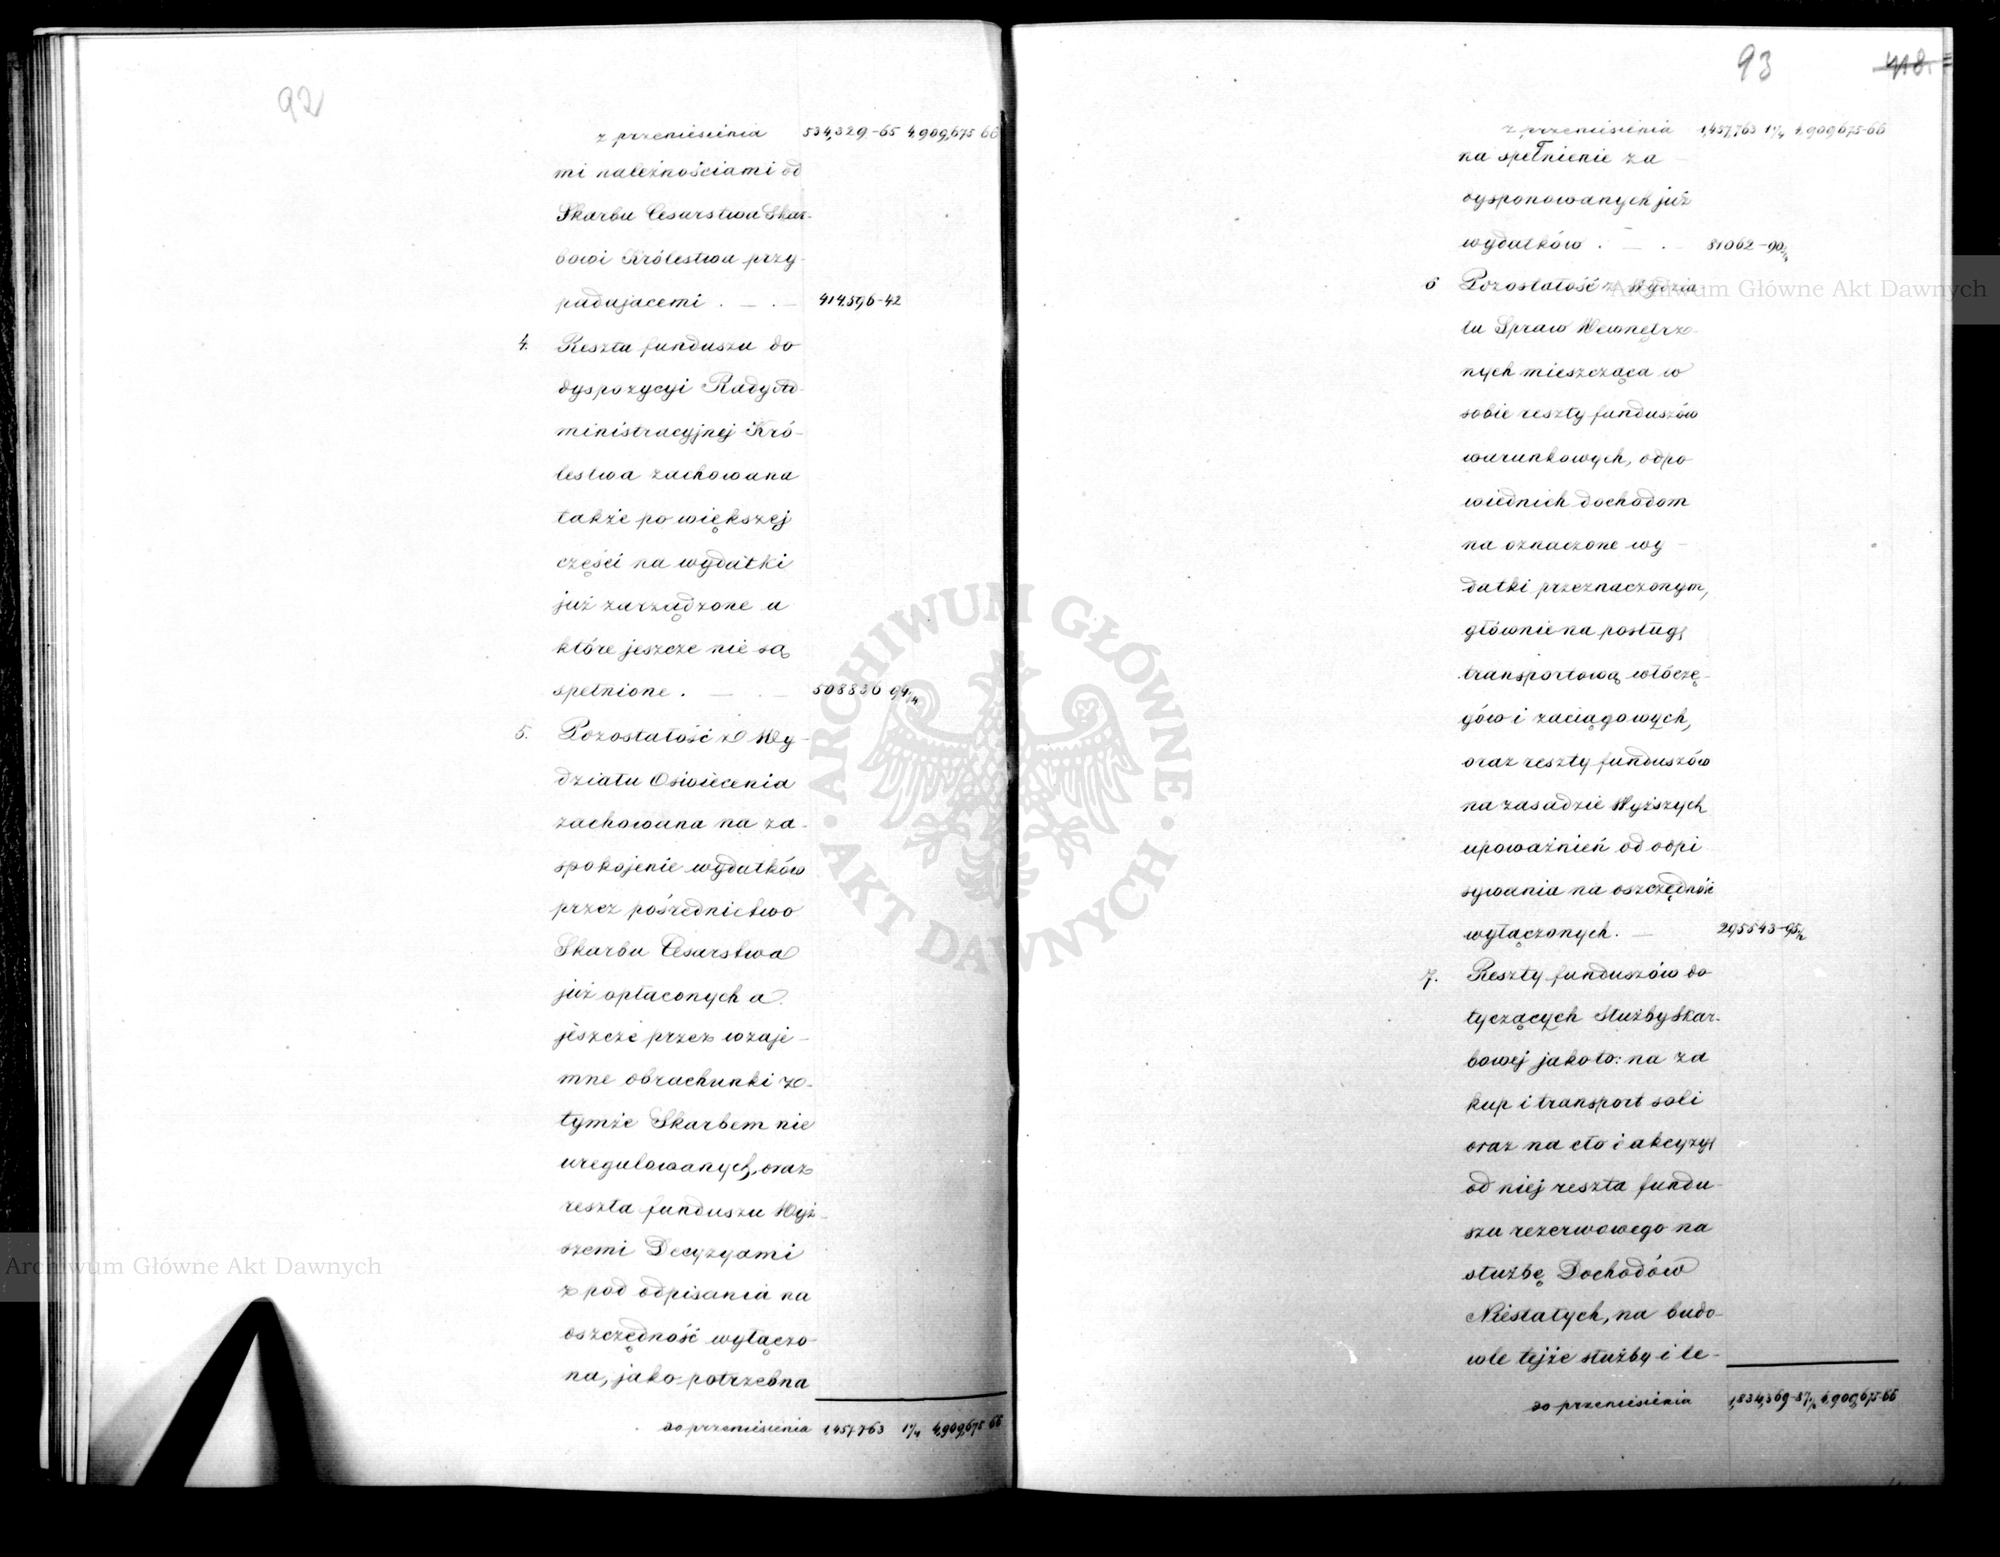 92
z przeniesienia 534,329-65 4,909,675 66
mi należnościami od
Skarbu Cesarstwa Skar-
bowi Królestwa przy-
padającemi . — . — 414,596-42
4. Reszta funduszu do
dyspozycyi Rady Ad-
ministracyjnej Kró-
lestwa zachowana
także po większej
części na wydatki
już zarządzone a
które jeszcze nie są
spełnione . — . — 508836 94/4
5. Pozostałość z Wy-
działu Oświecenia
zachowana na za-
spokojenie wydatków
przez pośrednictwo
Skarbu Cesarstwa
już opłaconych a
jeszcze przez wzaje-
mne obrachunki z
tymże Skarbem nie
uregulowanych, oraz
reszta funduszu Wyż-
szemi Decyzyami
z pod odpisania na
oszczędność wyłączo-
na, jako potrzebna
do przeniesienia 1,457,763 1/4 4,909,675 66
93
418.
z przeniesienia 1,457,763 1/4 4,909,675-66
na spełnienie za-
dysponowanych już
wydatków . — . — 81062-90/4
6 Pozostałość z Wydzia
łu Spraw Wewnętrz-
nych mieszcząca w
sobie reszty funduszów
warunkowych, odpo
wiednich dochodom
na oznaczone wy-
datki przeznaczonym,
głównie na posługę
transportową włóczę-
gów i zaciągowych,
oraz reszty funduszów
na zasadzie Wyższych
upoważnień od odpi
sywania na oszczędność
wyłączonych. — 295543-95/2
7. Reszty funduszów do
tyczących służby Skar-
bowej jako to: na za
kup i transport soli
oraz na cło i akcyzę
od niej reszta fundu-
szu rezerwowego na
służbę Dochodów
Niestałych, na budo-
wle tejże służby i le-
do przeniesienia 1,834,369-87/2 4,909,675-66
Archiwum Główne Akt Dawnych
Archiwum Główne Akt Dawnych
ARCHIWUM GŁÓWNE · AKT DAWNYCH ·